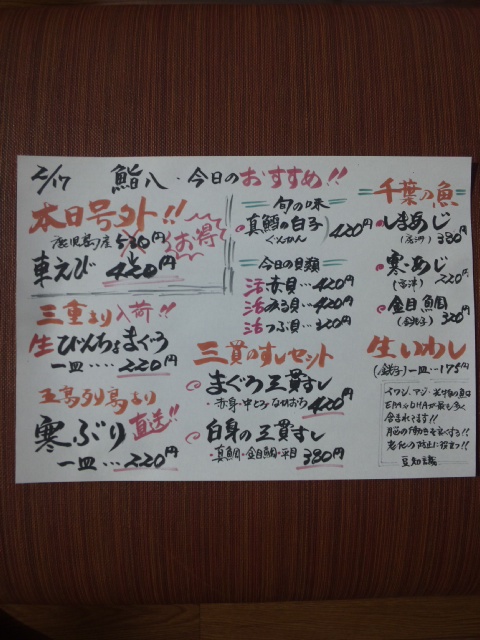 2/17 鮨八・今日のおすすめ!!
本日号外!!
鹿児島産 530円
お得
車えび 420円
三重より入荷!!
生びんちょまぐろ
一皿‥‥220円
五島列島より
直送!!
寒ぶり
一皿‥‥220円
旬の味
真鱈の白子
ぐんかん
420円
今日の貝類
活赤貝‥420円
活みる貝‥420円
活つぶ貝‥320円
三貫のすしセット
まぐろ三貫すし
・赤身・中とろ・なかおち
420円
白身の三貫すし
・真鯛・金目鯛・平目 380円
千葉の魚
しまあじ
380円
寒・あじ
220円
金目鯛
(銚子) 320円
生いわし
(銚子)一皿‥175円
イワシ、アジ・
EPAやDHAが最も多く
含まれてます!!
脳の働きを
老化の防止に役立つ!!
豆知識